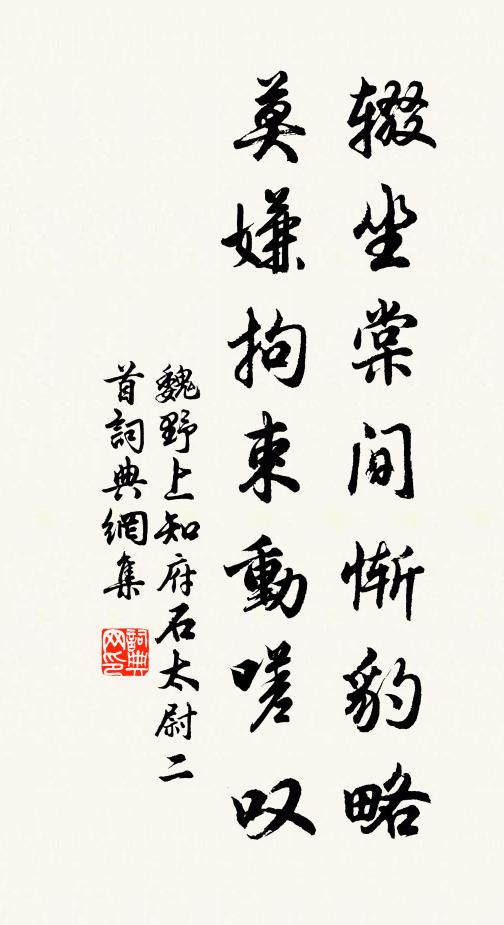 辍坐棠间惭豹略
莫嫌拘束動嗟叹
魏野上知府石太尉二
首詞典網集
詞典网印